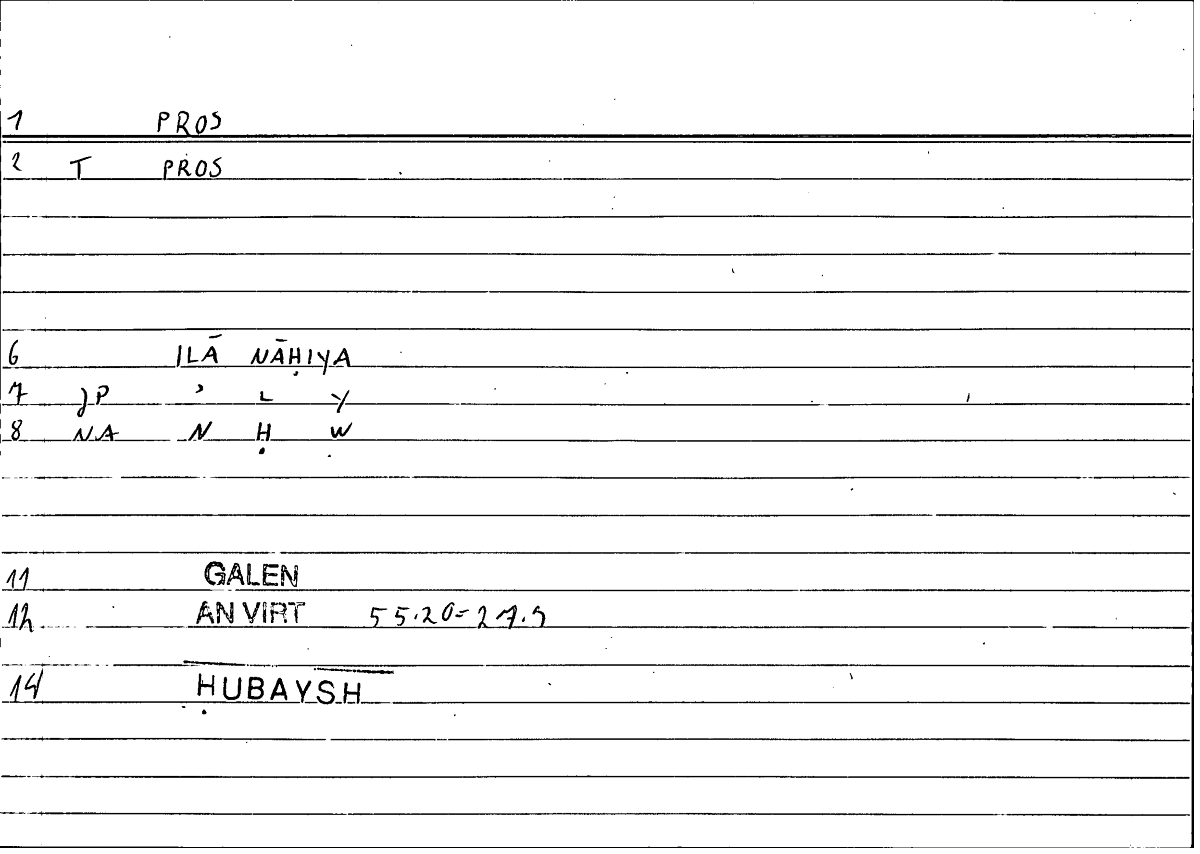 1 PROS
2 T PROS
6 ILĀ NĀḤIYA
7 JP ʾ L Y
8 NA N Ḥ W
11 GALEN
12 AN VIRT 55.20=27.9
14 ḤUBAYSH